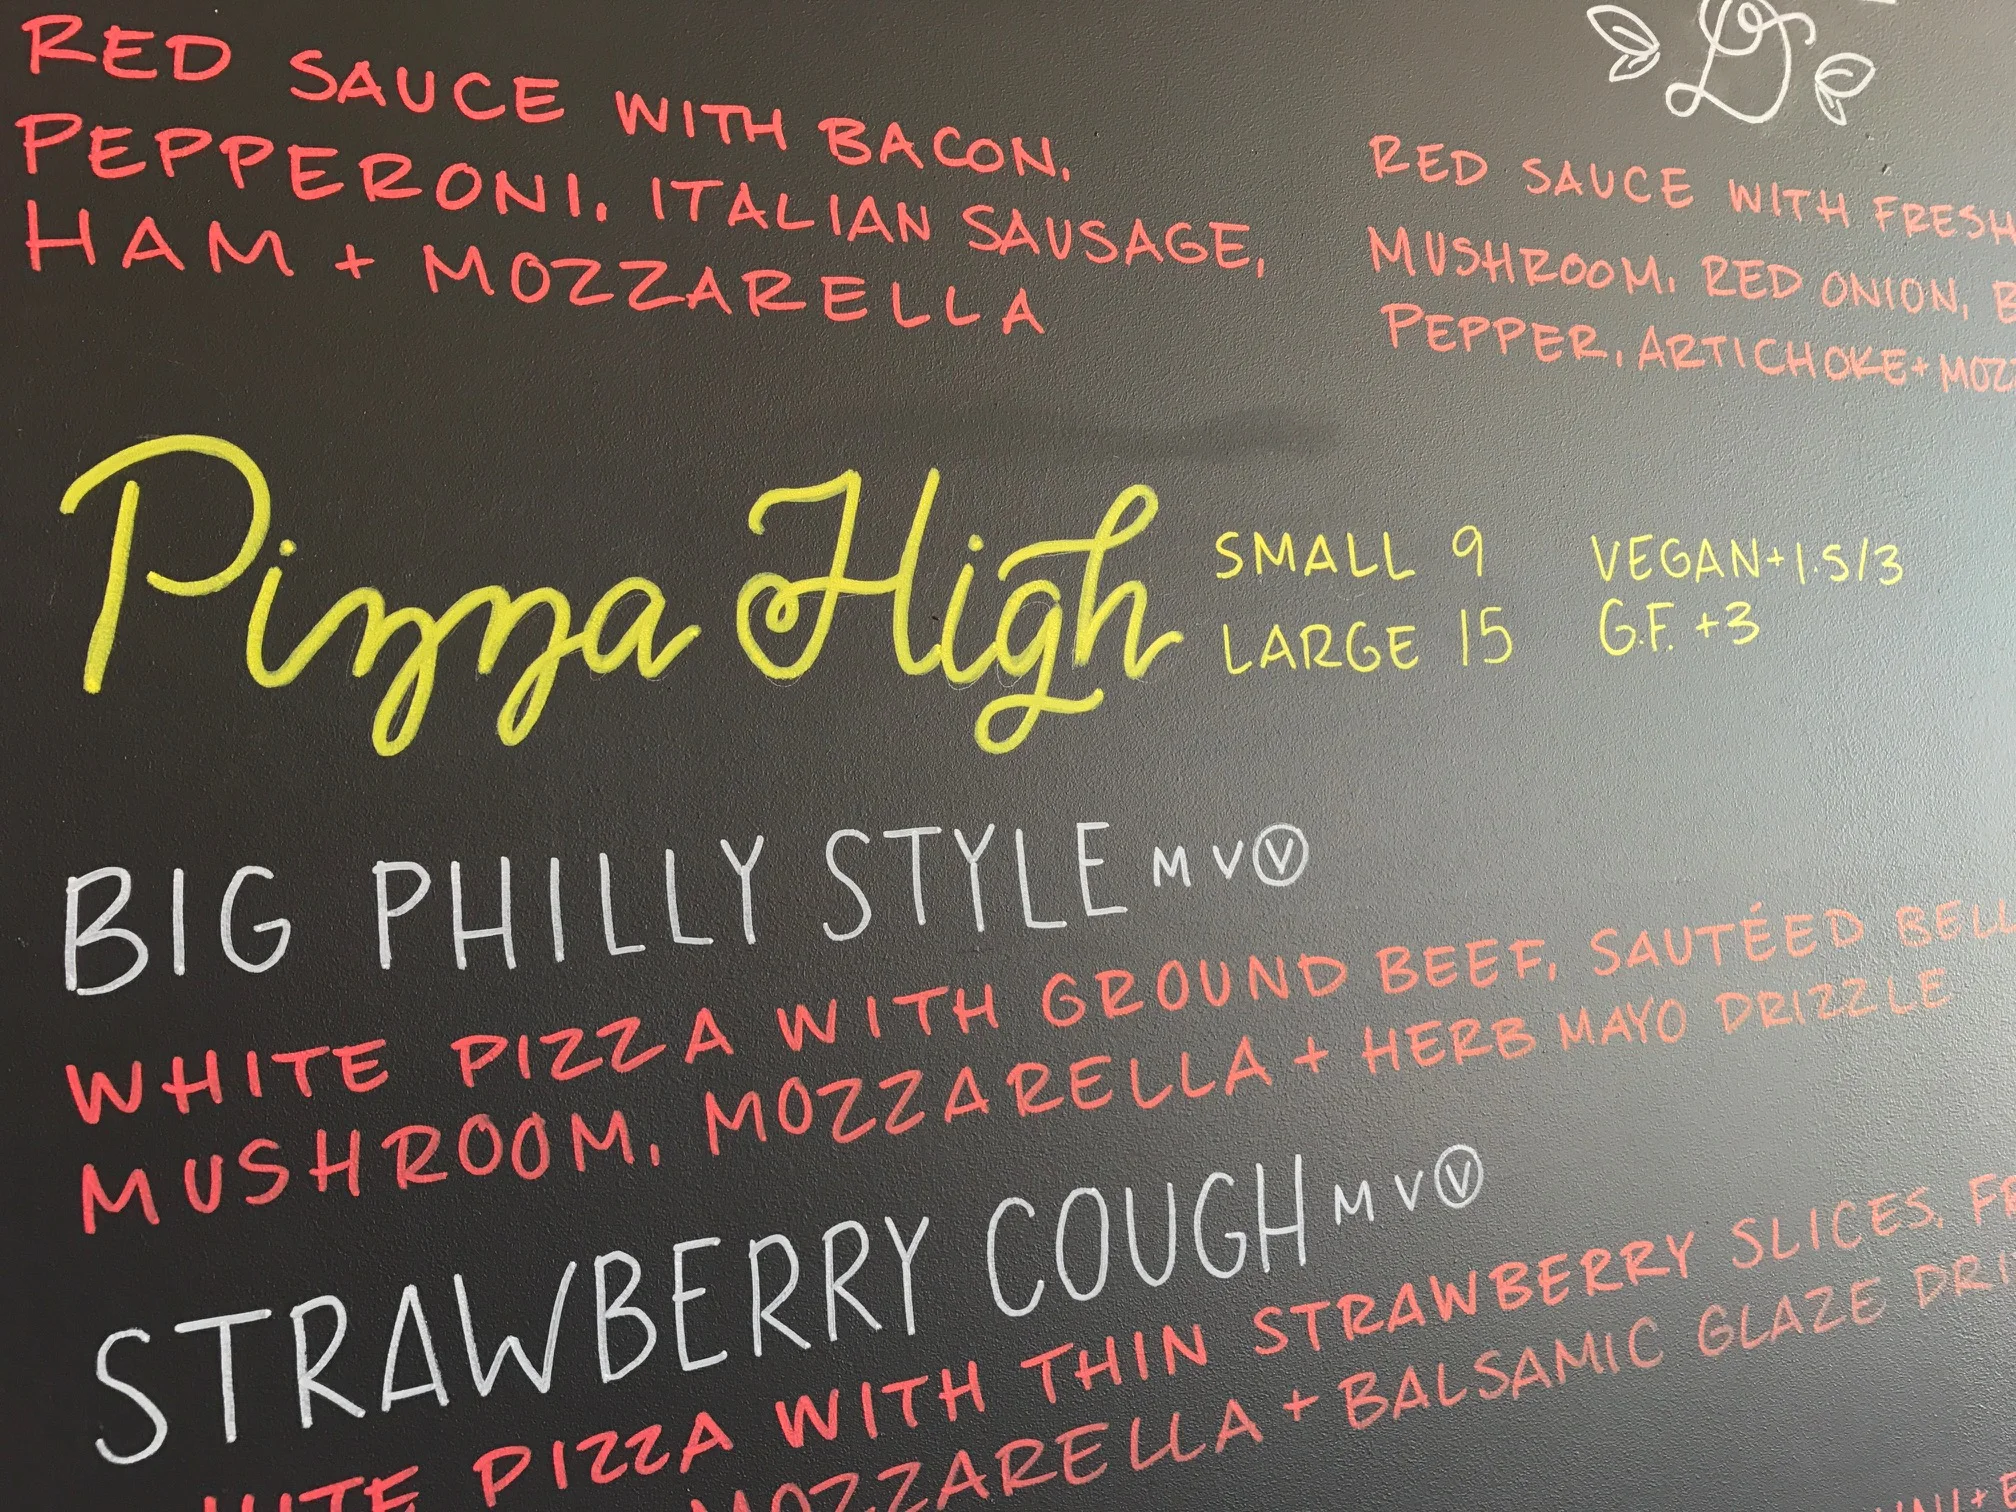 RED SAUCE WITH BACON,
PEPPERONI, ITALIAN SAUSAGE,
HAM + MOZZARELLA
RED SAUCE WITH FRESH
MUSHROOM, RED ONION,
PEPPER, ARTICHOKE +
Pizza High
SMALL 9
LARGE 15
VEGAN+1.5/3
G.F. +3
BIG PHILLY STYLE M V Ⓥ
WHITE PIZZA WITH GROUND BEEF, SAUTÉED BELL
MUSHROOM, MOZZARELLA + HERB MAYO DRIZZLE
STRAWBERRY COUGH M V Ⓥ
PIZZA WITH THIN STRAWBERRY SLICES,
MOZZARELLA + BALSAMIC GLAZE